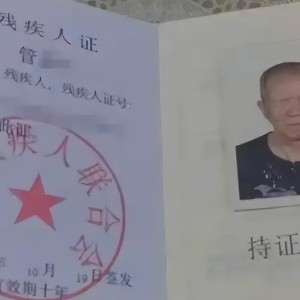 残疾人证
管
残疾人，残疾人证号：
此证
疾人联合会
10月19日签发
有效期十年
持证